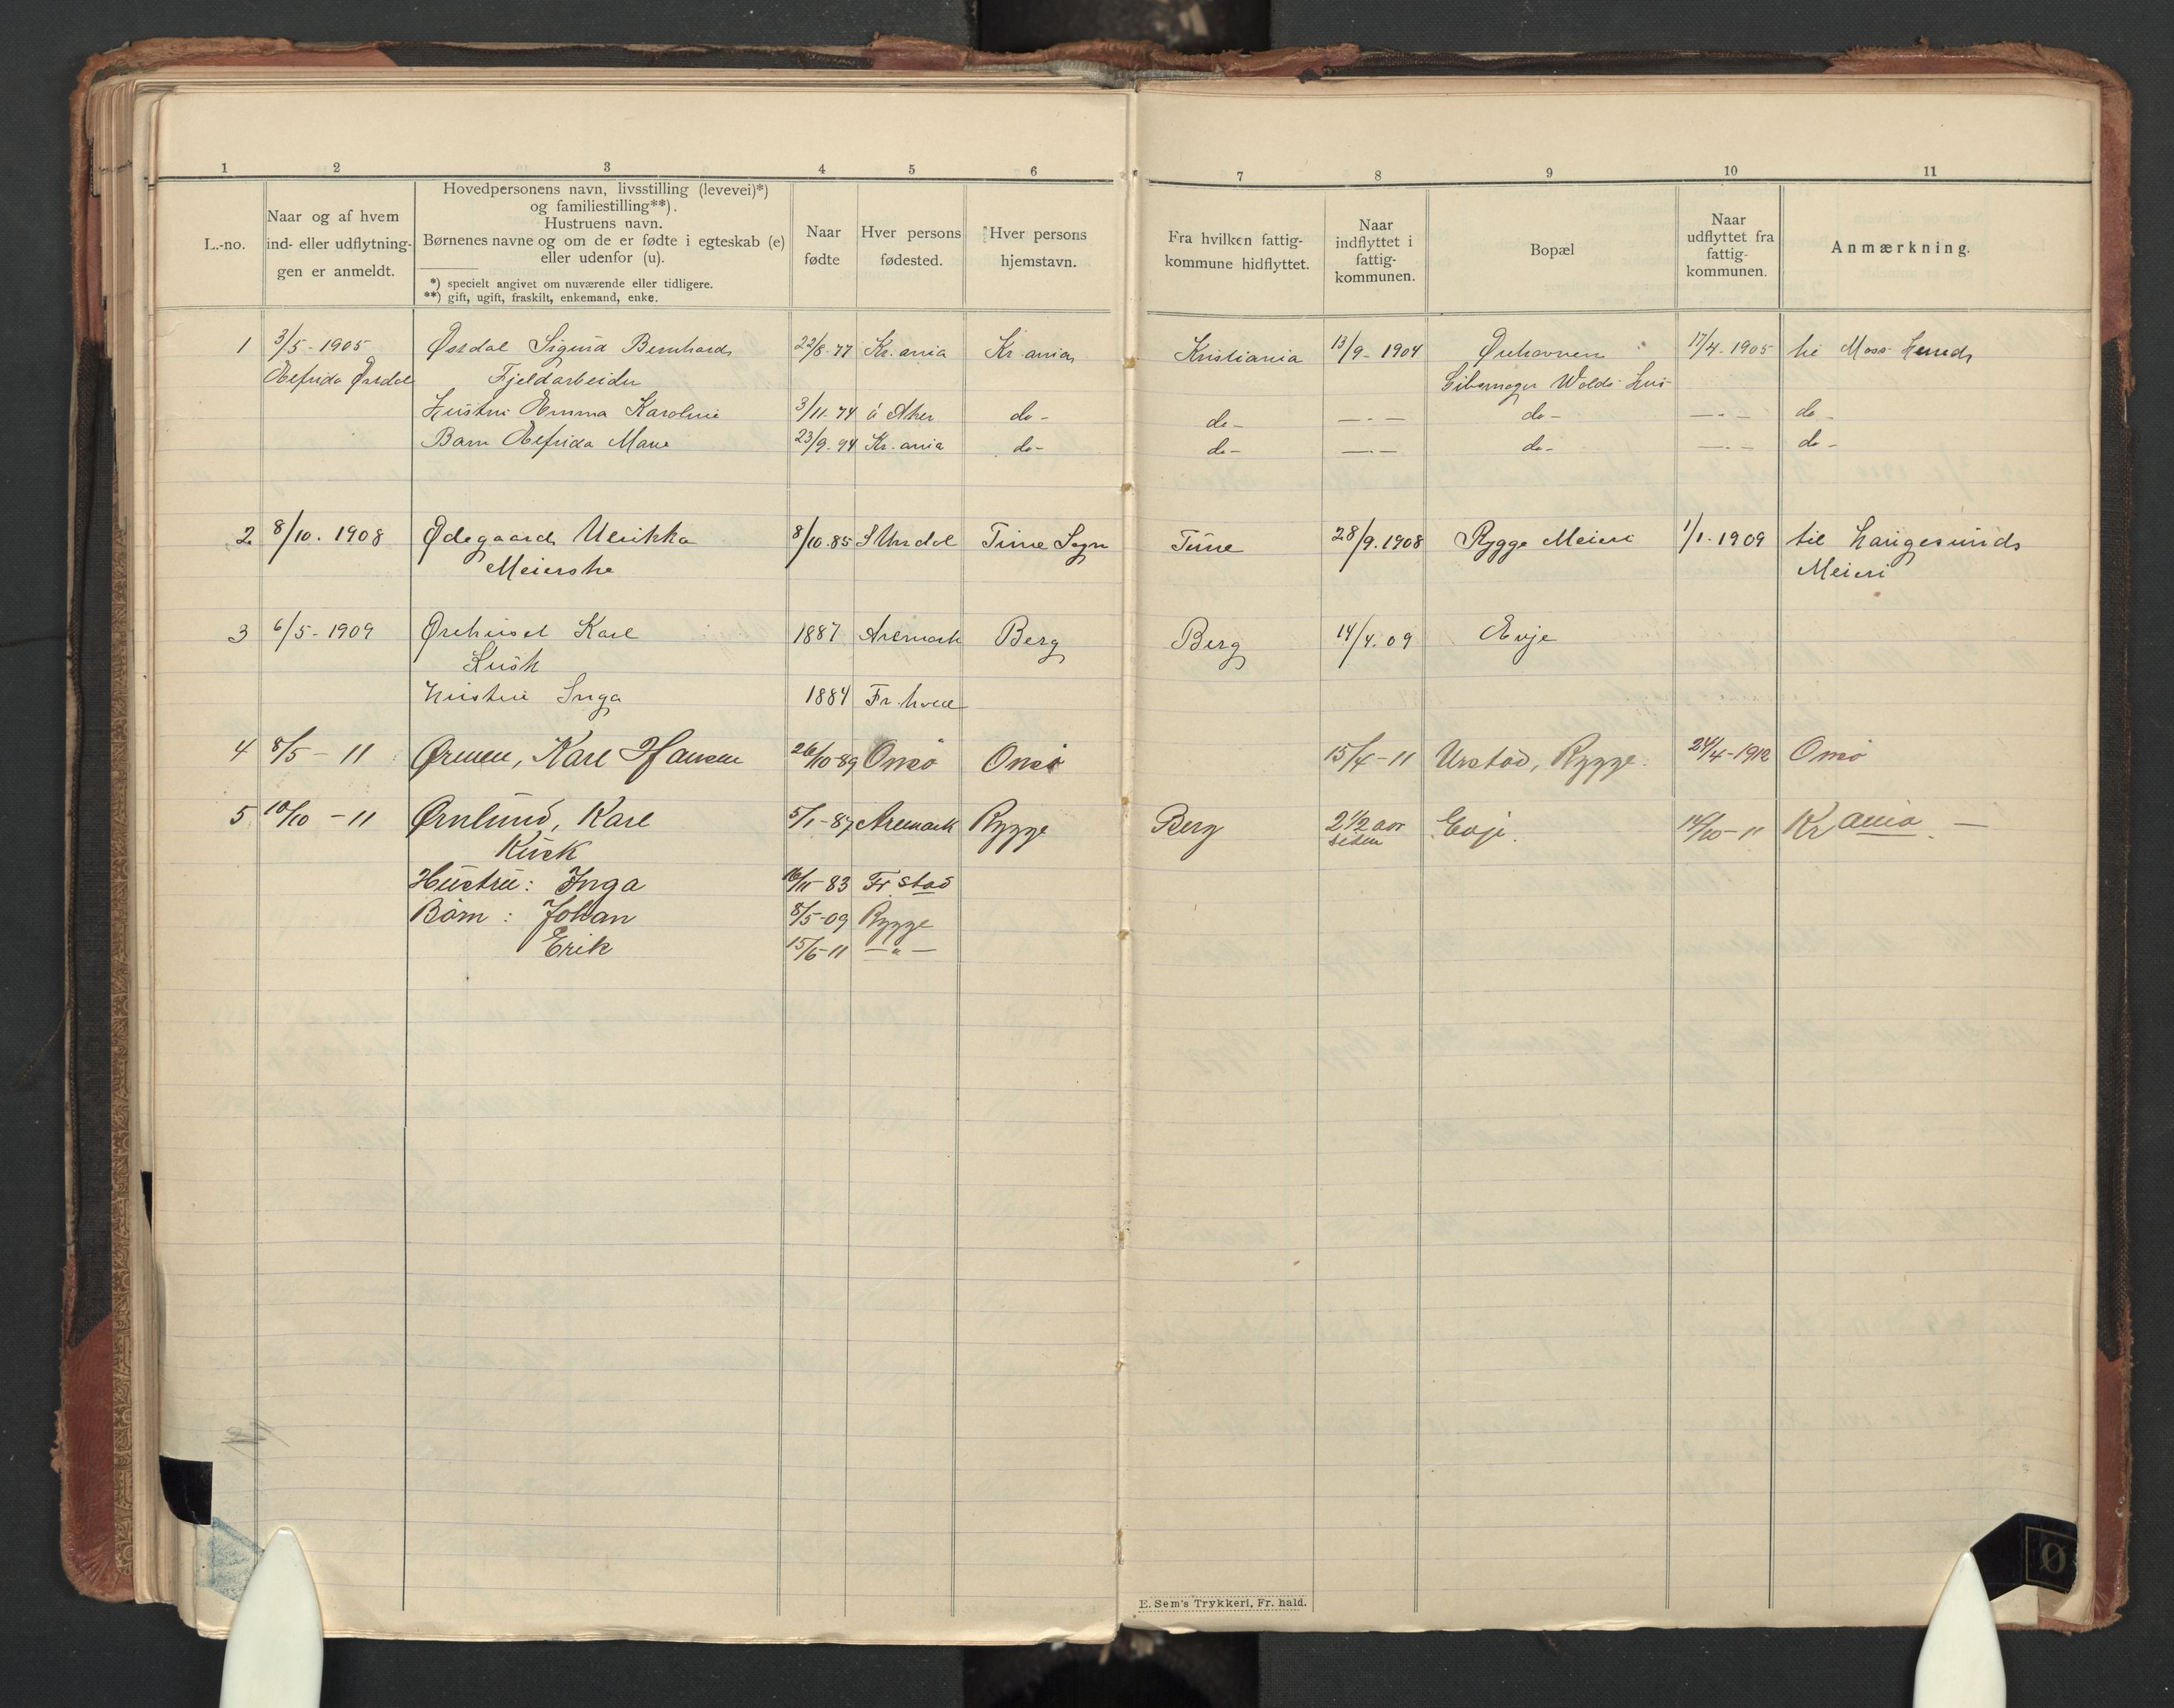 1 2 3 4 5 6 7 8 9 10 11
L.-no.
Naar og af hvem
ind- eller udflytnin-
gen er anmeldt.
Hovedpersonens navn, livsstilling (levevei)*)
og familiestilling**).
Hustruens navn.
Børnenes navne og om de er fødte i egteskab (e)
eller udenfor (u).
*) specielt angivet om nuværende eller tidligere.
**) gift, ugift, fraskilt, enkemand, enke.
Naar
fødte
Hver persons
fødested.
Hver persons
hjemstavn.
Fra hvilken fattig-
kommune hidflyttet.
Naar
indflyttet i
fattig-
kommunen.
Bopæl
Naar
udflyttet fra
fattig-
kommunen.
Anmærkning.
1 3/5-1905 Ørdal Sigurd Bernhard 22/8-77 Kr.ania Kr.ania Kristiania 13/9-1904 17/4-1905 til Moss
Alfrida Ørdal Fjeldarbeider Wolds Hus
Hustru Emma Karoline 3/11-74 Aker do- do- —.— do- —.— do-
Barn Alfrida Marie 23/9-94 Kr.ania do- do- —.— do- —.— do-
2 8/10. 1908 Ødegaard Ulrikka 8/10.85 Tune Sogn Tune 28/9.1908 Rygge Meieri 1/1.1909 til Langesunds
Meierske Meieri
3 6/5-1909 Karl 1887 Aremark Berg Berg 14/4.09 Evje
Kusk
Hustru Inga 1884 Fr.hald
4 8/5-11 Ørmen, Karl Hansen 26/10-89 Onsø Onsø 15/4-11 Urstad, Rygge. 24/4-1912 Onsø
5 10/10-11 Ørnlund, Karl 5/1-87 Aremark Rygge Berg 2 1/2 aar Evje. 14/10-11 Kr ania —
Kusk siden
Hustru: Inga 16/11-83 Fr stad
Børn: Johan 8/5-09 Rygge
Erik 15/6-11 —"—
E. Sem's Trykkeri, Fr. hald.
Ø